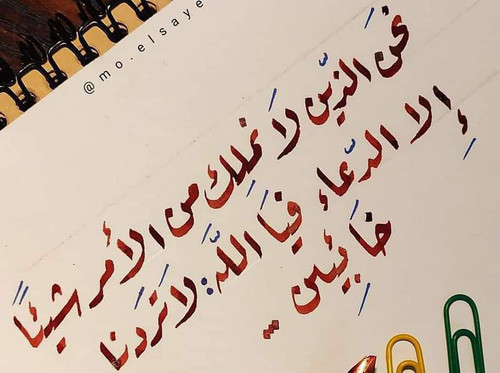 @mo.elsaye
نحن الذين لا نملك من الأمر شيئاً
إلا الدعاء فيا الله: لا تردنا
خائبين ..